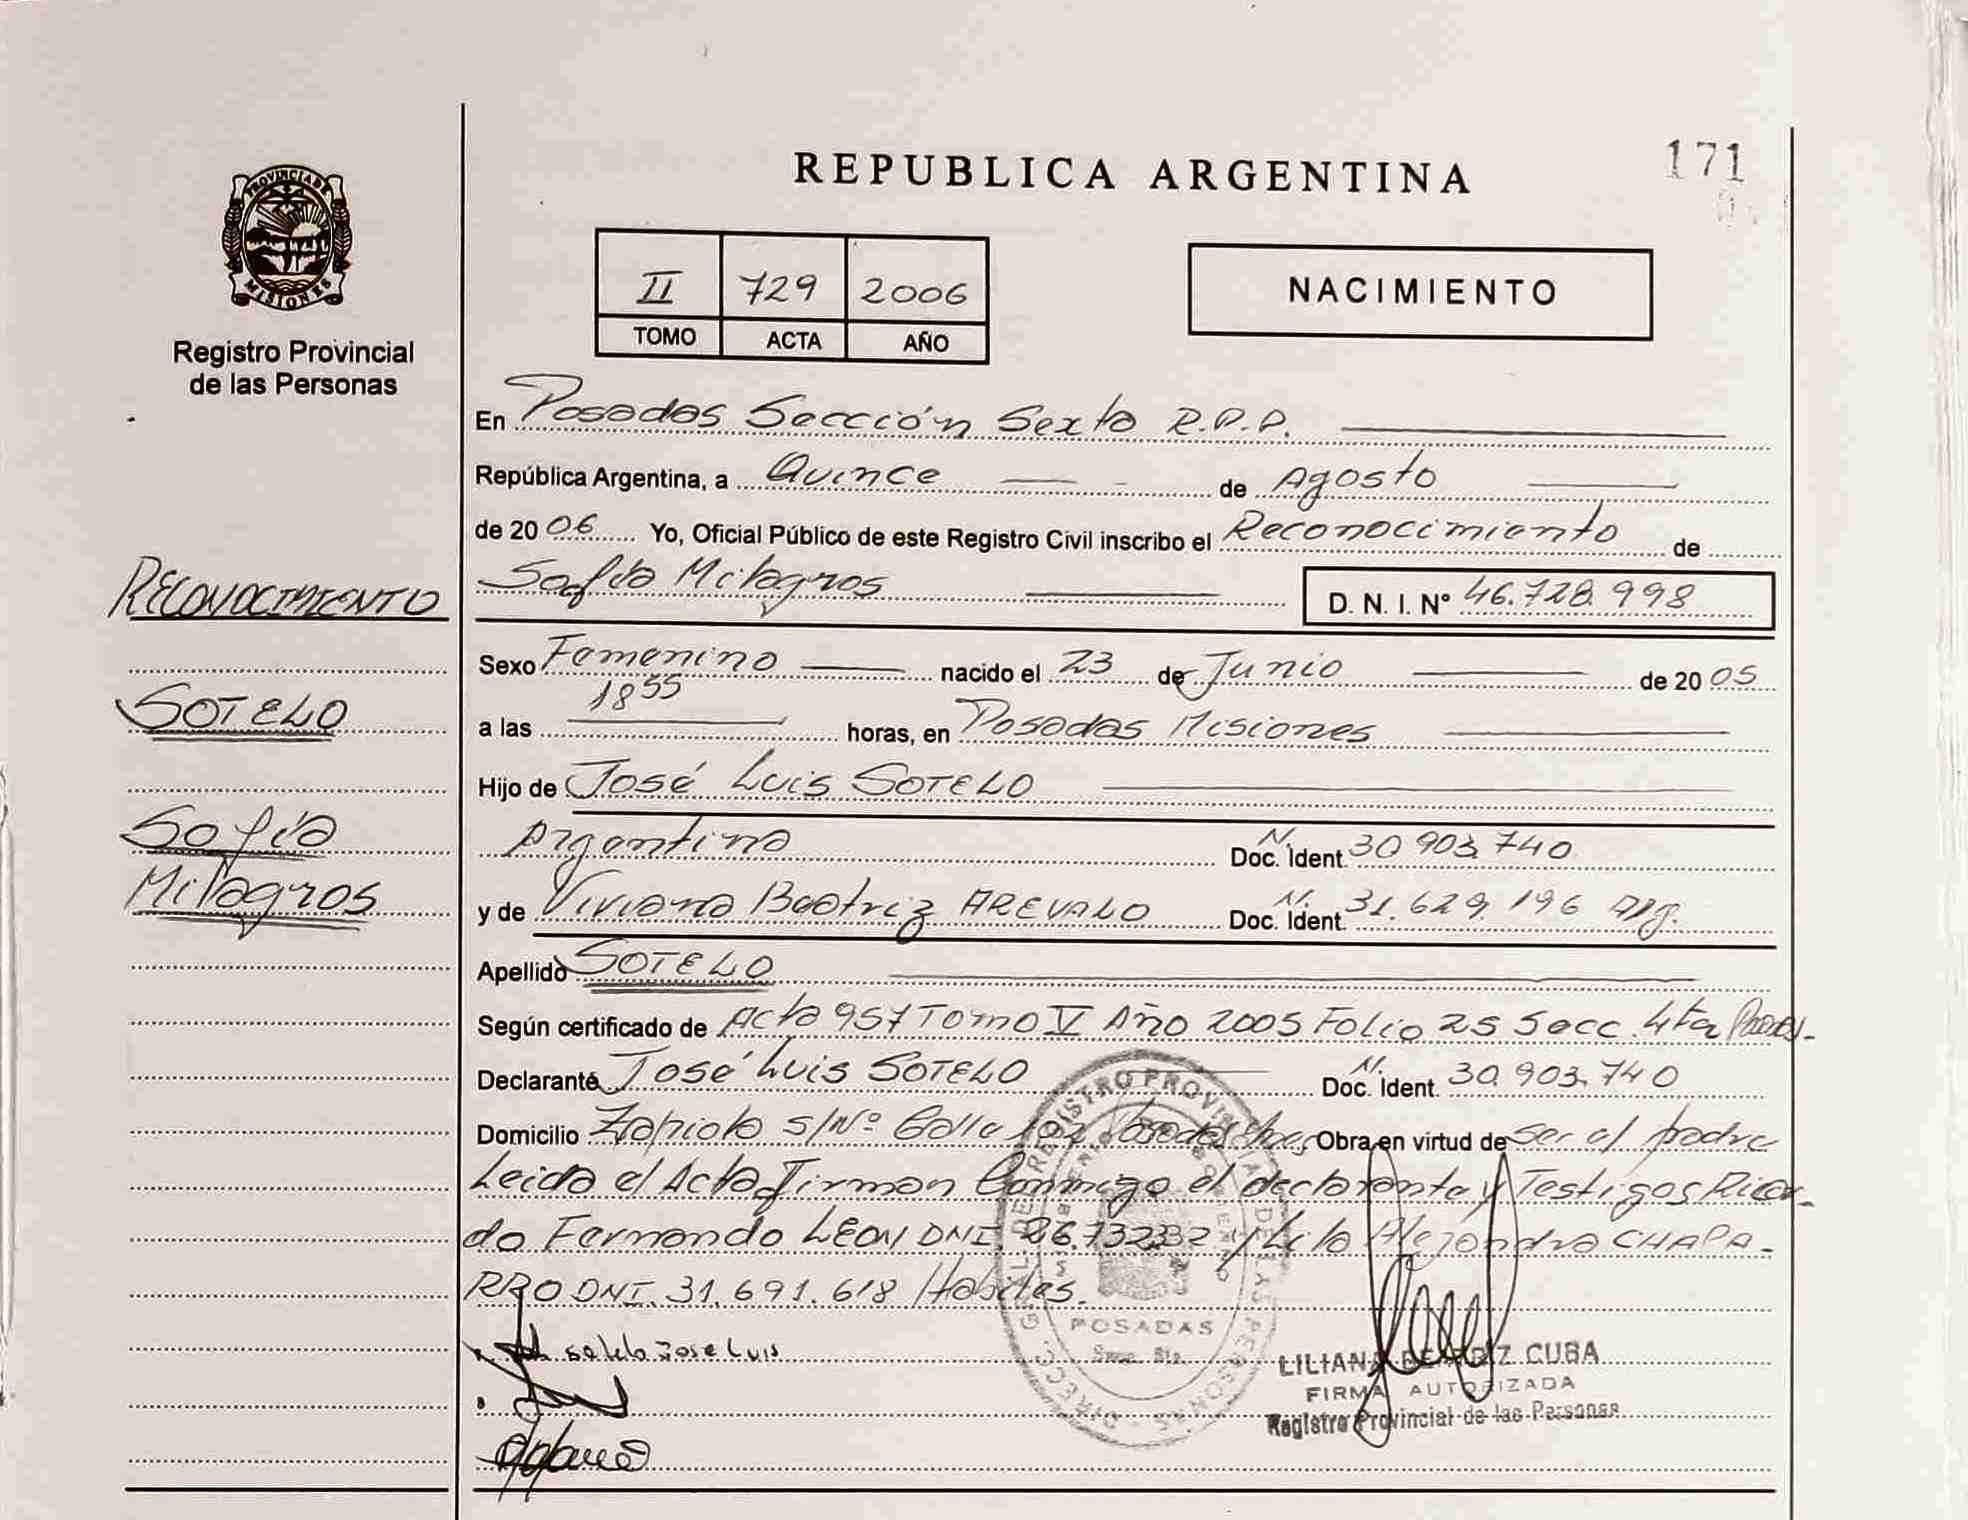 REPUBLICA ARGENTINA
171
PROVINCIA DE
MISIONES
Registro Provincial
de las Personas
II 729 2006
TOMO ACTA AÑO
NACIMIENTO
En Posadas Sección Sexta R.P.P.
República Argentina, a Quince de Agosto
de 2006 Yo, Oficial Público de este Registro Civil inscribo el Reconocimiento de
Sofía Milagros D. N. I. Nº 46.728.998
RECONOCIMIENTO
Sexo Femenino nacido el 23 de Junio de 2005
SOTELO
a las 1855 horas, en Posadas Misiones
Hijo de José Luis SOTELO
Sofía
Argentino N. Doc. Ident. 30.903.740
Milagros
y de Viviana Beatriz AREVALO N. Doc. Ident. 31.629.196 Arg.
Apellido SOTELO
Según certificado de Acta 957 Tomo V Año 2005 Folio 25 Secc. 4ta Posadas-
Declarante José Luis SOTELO N. Doc. Ident. 30.903.740
Domicilio Zapiola s/Nº Calle Posadas Obra en virtud de Ser el padre
Leida el Acta Firman Conmigo el declarante y Testigos Ricar-
do Fernando LEON DNI. 26.732 Alejandra CHAPA-
RRO DNI. 31.691.618 Habiles.
Sotelo Jose Luis
DIRECC. GRAL. DE REGISTRO PROVINCIAL DE LAS PERSONAS
POSADAS
Secc. 6ta.
LILIANA BEATRIZ CUBA
FIRMA AUTORIZADA
Registro Provincial de las Personas